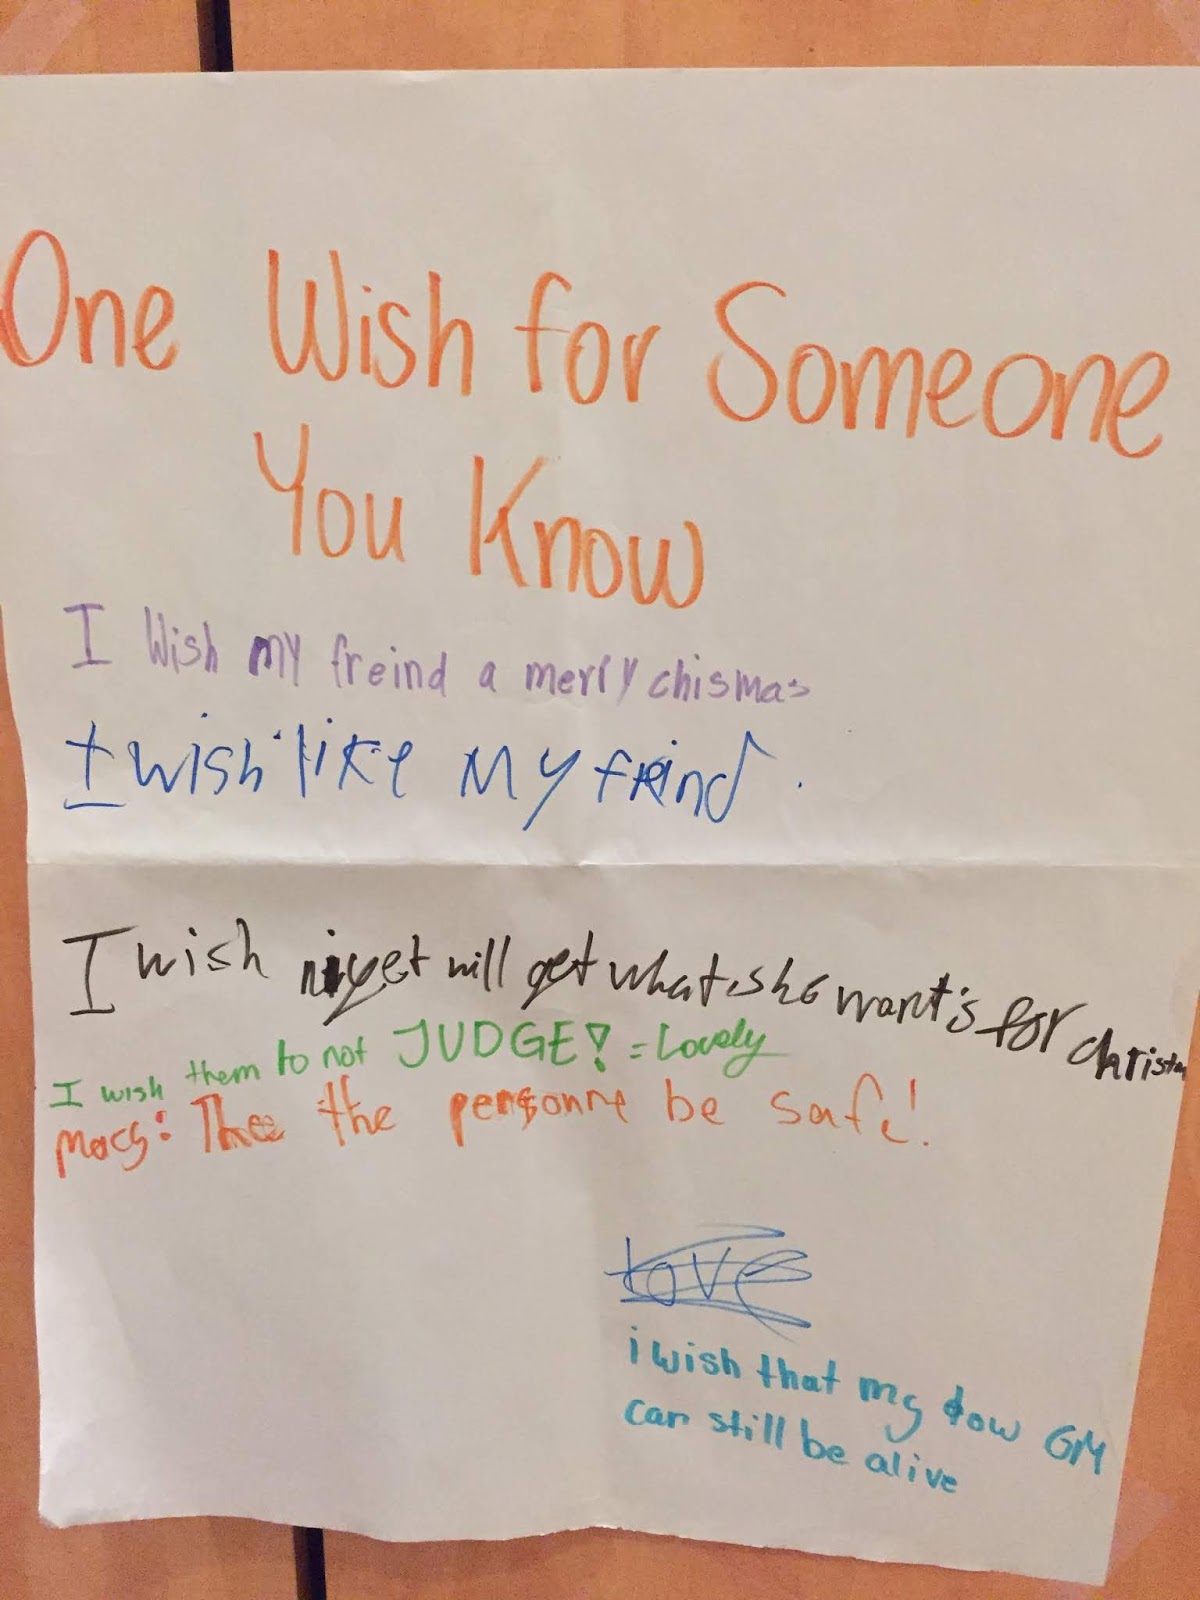 One Wish for Someone
You Know
I Wish my freind a merry chismas
I wish like my freind.
I wish will get what she want's for christm
I wish them to not JUDGE! = Lovely
the personne be safe!
Love
i wish that my GM
can still be alive